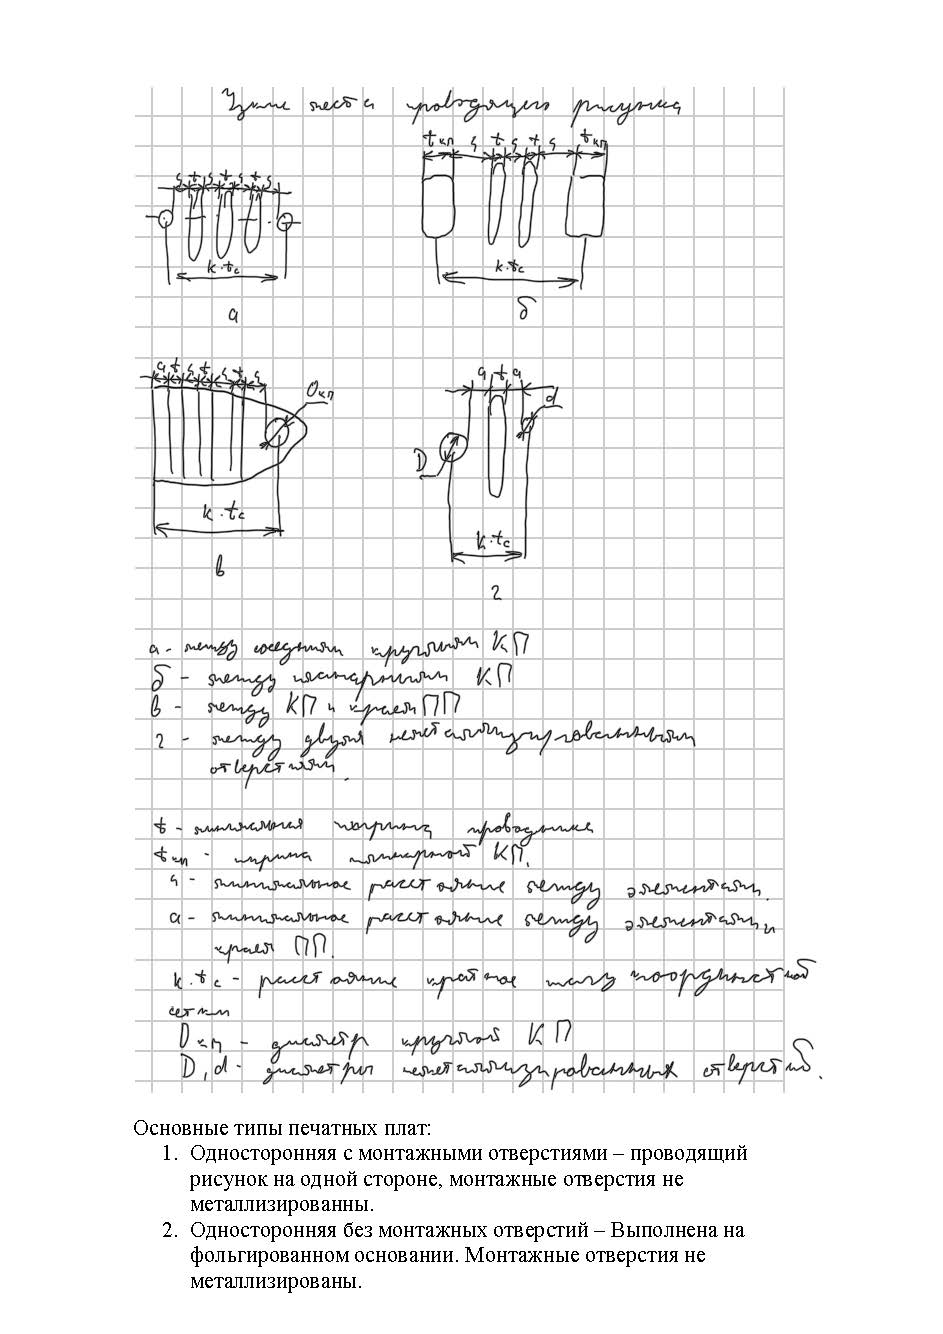 Узкие места проводящего рисунка
tкп s t s t s tкп
s t s t s t s
k·tc
k·tc
а
б
q t s t s t s
Dкп
q t q
d
D
k·tc
k·tc
в
г
а - между соседними круглыми КП
б - между планарными КП
в - между КП и краем ПП
г - между двумя неметаллизированными
отверстиями.
t - минимальная ширина проводника
tкп - ширина планарной КП.
s - минимальное расстояние между элементами.
q - минимальное расстояние между элементами и
краем ПП.
k·tc - расстояние кратное шагу координатной
сетки
Dкп - диаметр круглой КП
D, d - диаметры неметаллизированных отверстий.
Основные типы печатных плат:
1. Односторонняя с монтажными отверстиями – проводящий
рисунок на одной стороне, монтажные отверстия не
металлизированны.
2. Односторонняя без монтажных отверстий – Выполнена на
фольгированном основании. Монтажные отверстия не
металлизированы.